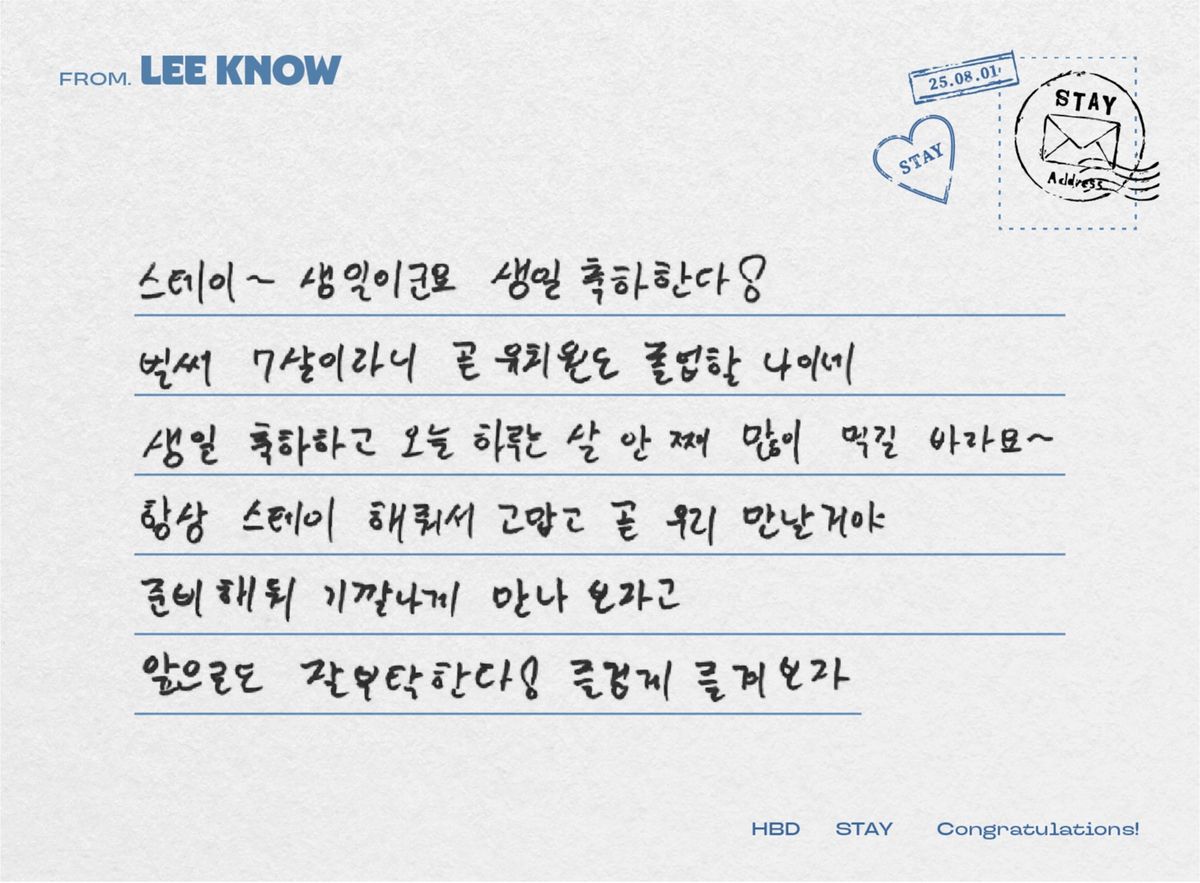 FROM. LEE KNOW
25.08.01
STAY
STAY
Address
스테이~ 생일이군요 생일 축하한다!
벌써 7살이라니 곧 유치원도 졸업할 나이네
생일 축하하고 오늘 하루는 살 안 쪄 많이 먹길 바라요~
항상 스테이 해줘서 고맙고 곧 우리 만날거야
준비해둬 기깔나게 만나 보자고
앞으로도 잘 부탁한다! 즐겁게 즐겨보자
HBD STAY Congratulations!